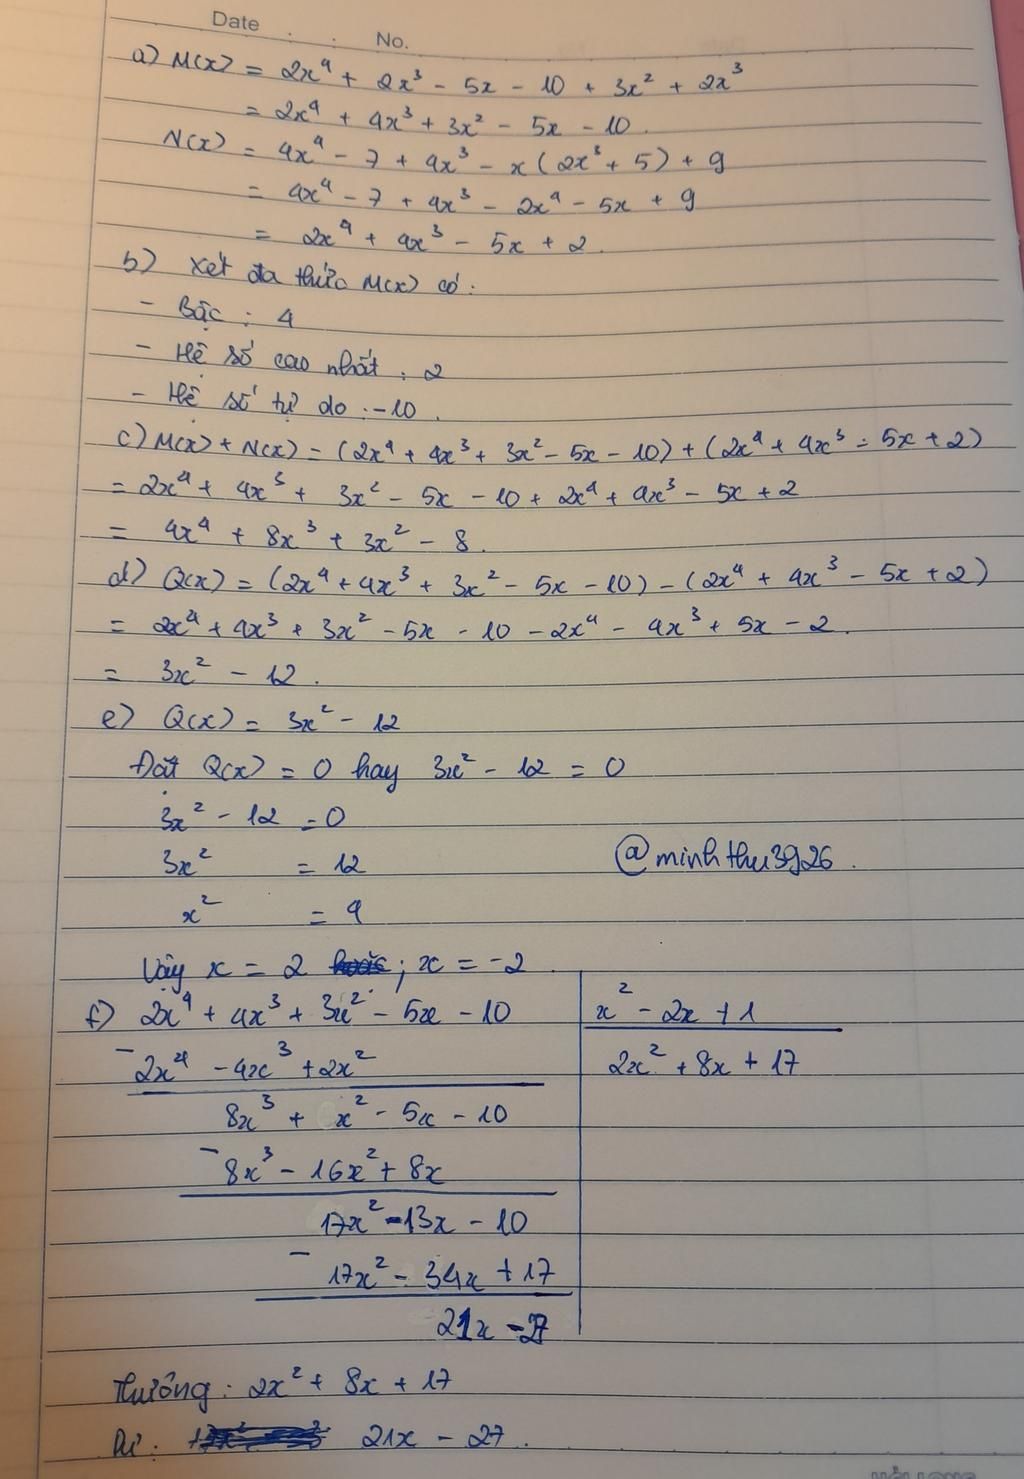 Date . . No.
a) M(x) = 2x⁴ + 2x³ - 5x - 10 + 3x² + 2x³
= 2x⁴ + 4x³ + 3x² - 5x - 10.
N(x) = 4x⁴ - 7 + 4x³ - x(2x³ + 5) + 9
= 4x⁴ - 7 + 4x³ - 2x⁴ - 5x + 9
= 2x⁴ + 4x³ - 5x + 2.
b) Xét đa thức M(x) có:
- Bậc : 4
- Hệ số cao nhất : 2
- Hệ số tự do : -10.
c) M(x) + N(x) = (2x⁴ + 4x³ + 3x² - 5x - 10) + (2x⁴ + 4x³ - 5x + 2)
= 2x⁴ + 4x³ + 3x² - 5x - 10 + 2x⁴ + 4x³ - 5x + 2
= 4x⁴ + 8x³ + 3x² - 8.
d) Q(x) = (2x⁴ + 4x³ + 3x² - 5x - 10) - (2x⁴ + 4x³ - 5x + 2)
= 2x⁴ + 4x³ + 3x² - 5x - 10 - 2x⁴ - 4x³ + 5x - 2.
= 3x² - 12.
e) Q(x) = 3x² - 12
Đặt Q(x) = 0 hay 3x² - 12 = 0
3x² - 12 = 0
3x² = 12
@minhthu3926.
x² = 4
Vậy x = 2 ; x = -2
f) 2x⁴ + 4x³ + 3x² - 5x - 10 | x² - 2x + 1
- 2x⁴ - 4x³ + 2x² | 2x² + 8x + 17
8x³ + x² - 5x - 10
- 8x³ - 16x² + 8x
17x² - 13x - 10
- 17x² - 34x + 17
21x - 27
Thương : 2x² + 8x + 17
Dư : 21x - 27.